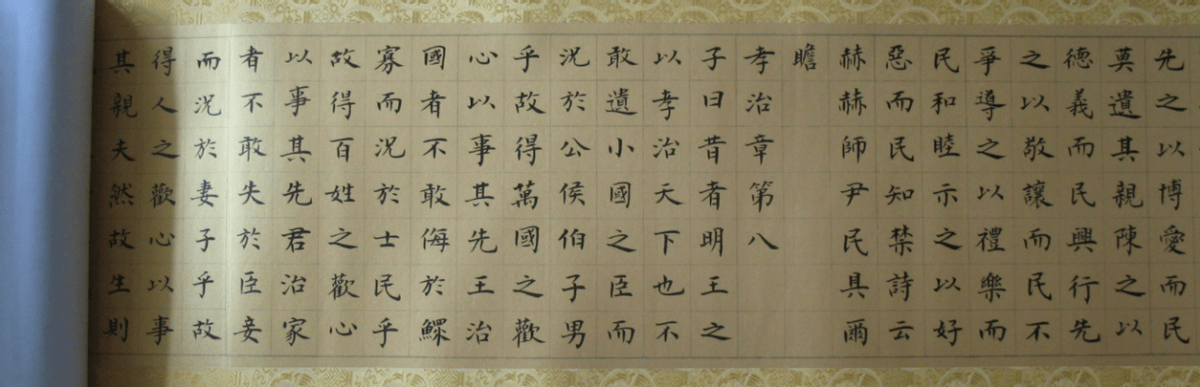 先之以博愛而民
莫遺其親陳之以
德義而民興行先
之以敬讓而民不
爭導之以禮樂而
民和睦示之以好
惡而民知禁詩云
赫赫師尹民具爾
瞻
孝治章第八
子曰昔者明王之
以孝治天下也不
敢遺小國之臣而
況於公侯伯子男
乎故得萬國之歡
心以事其先王治
國者不敢侮於鰥
寡而況於士民乎
故得百姓之歡心
以事其先君治家
者不敢失於臣妾
而況於妻子乎故
得人之歡心以事
其親夫然故生則